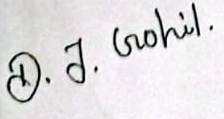 D. J. Gohil.